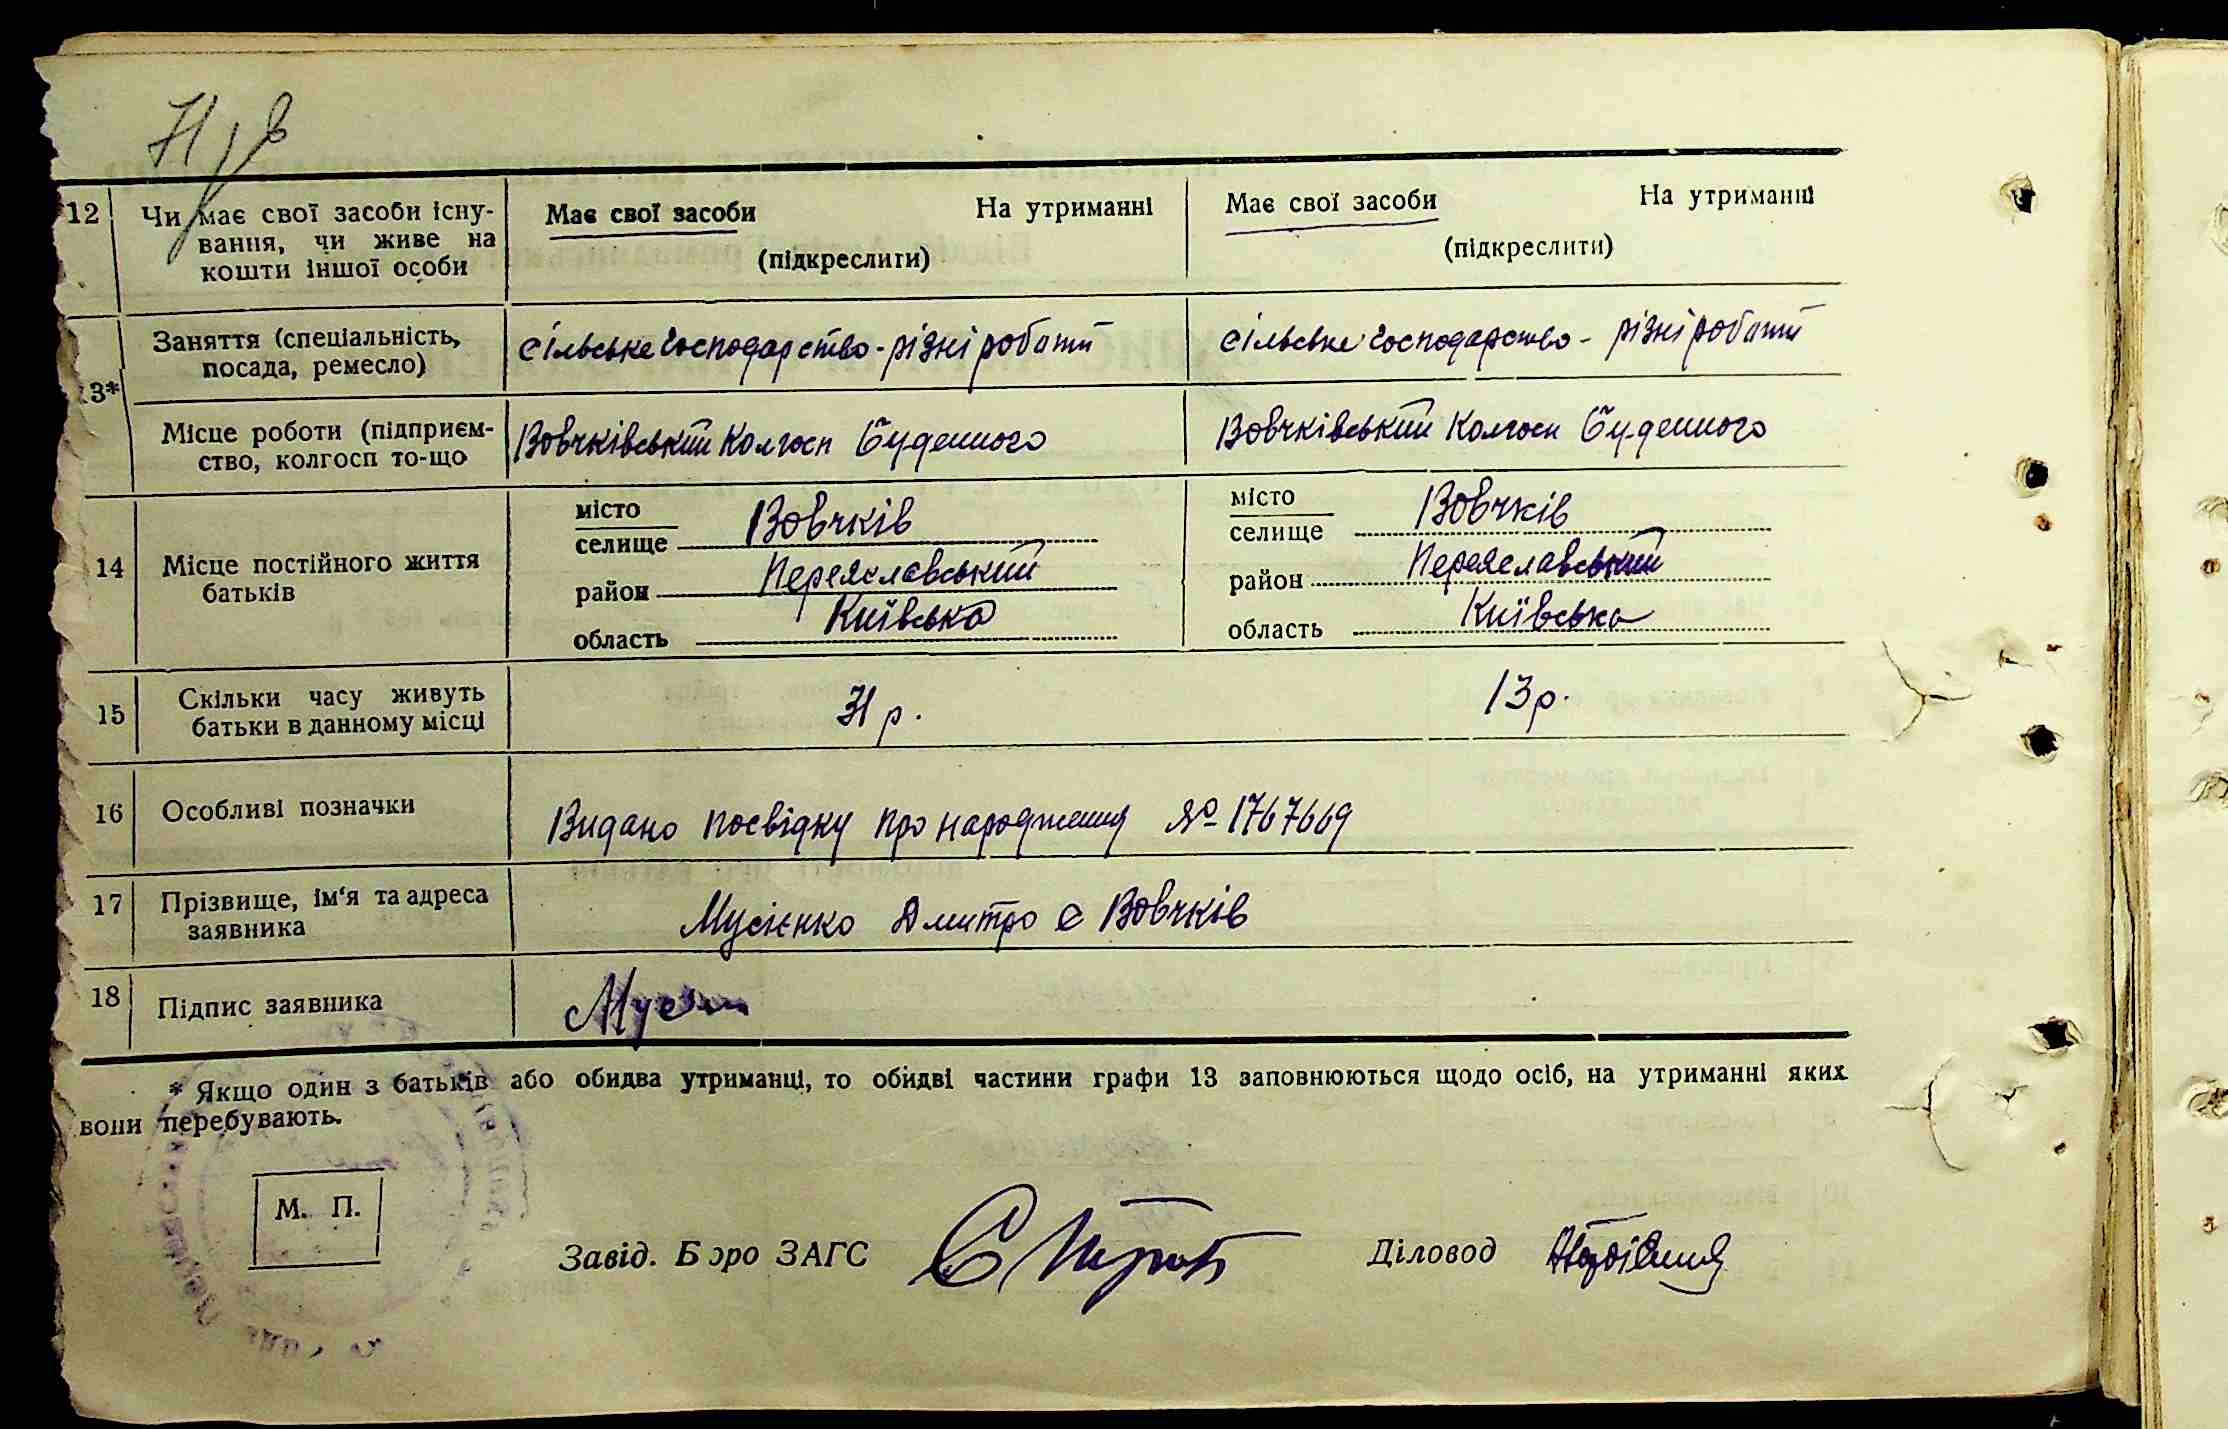 71
12 Чи має свої засоби існу-
вання, чи живе на
кошти іншої особи
Має свої засоби На утриманні
(підкреслити)
Має свої засоби На утриманні
(підкреслити)
13*
Заняття (спеціальність,
посада, ремесло)
сільське господарство - різні роботи
сільське господарство - різні роботи
Місце роботи (підприєм-
ство, колгосп то-що
Вовчківський Колгосп Буденного
Вовчківський Колгосп Буденного
14 Місце постійного життя
батьків
місто
селище Вовчків
район Переяславський
область Київська
місто
селище Вовчків
район Переяславський
область Київська
15 Скільки часу живуть
батьки в данному місці
31 р.
13 р.
16 Особливі позначки
Видано посвідку про народження № 1767669
17 Прізвище, ім'я та адреса
заявника
Мусієнко Дмитро с Вовчків
18 Підпис заявника
* Якщо один з батьків або обидва утриманці, то обидві частини графи 13 заповнюються щодо осіб, на утриманні яких
вони перебувають.
М. П.
Завід. Бюро ЗАГС
Діловод